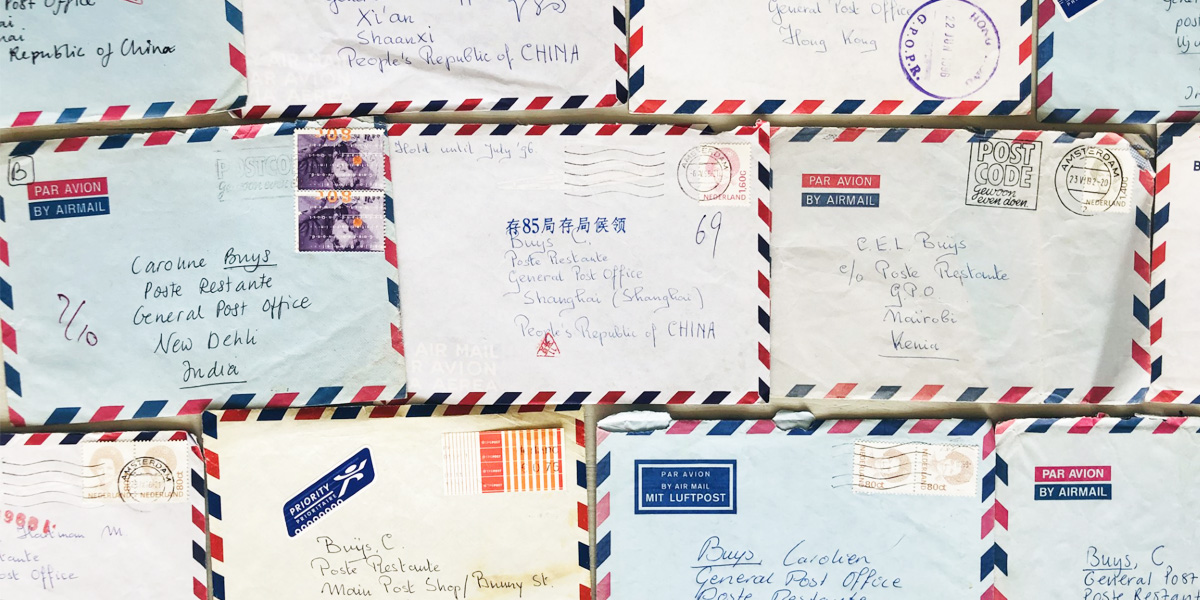 Post Office
Republic of China
General Post Office
Xi'an
Shaanxi
People's Republic of CHINA
General Post Office
Hong Kong
HONG
22 JUN 1996
G.P.O.P.R.
B
PAR AVION
BY AIRMAIL
POSTCODE
Gewoon even doen
80f
80f
Caroline Buys
Poste Restante
General Post Office
New Dehli
India
7/10
Hold until July '96
AMSTERDAM
1.60c
NEDERLAND
存85局存局候领
69
Buys C.
Poste Restante
General Post Office
Shanghai (Shanghai)
People's Republic of CHINA
AIR MAIL
PAR AVION
AEREA
PAR AVION
BY AIRMAIL
POST
CODE
gewoon
even doen
AMSTERDAM
NEDERLAND
C.E.L. Buÿs
c/o Poste Restante
GPO
Naïrobi
Kenia
AMSTERDAM
NEDERLAND
NEDERLAND
80ct
Hartman M
Post Office
PRIORITY
PRIORITAIRE
0.76
Buÿs, C.
Poste Restante
Main Post Shop/Bunny St.
PAR AVION
BY AIR MAIL
MIT LUFTPOST
80ct
80ct
Buys, Carolien
General Post Office
Poste Restante
PAR AVION
BY AIRMAIL
Buys, C
General Post
Poste Restante